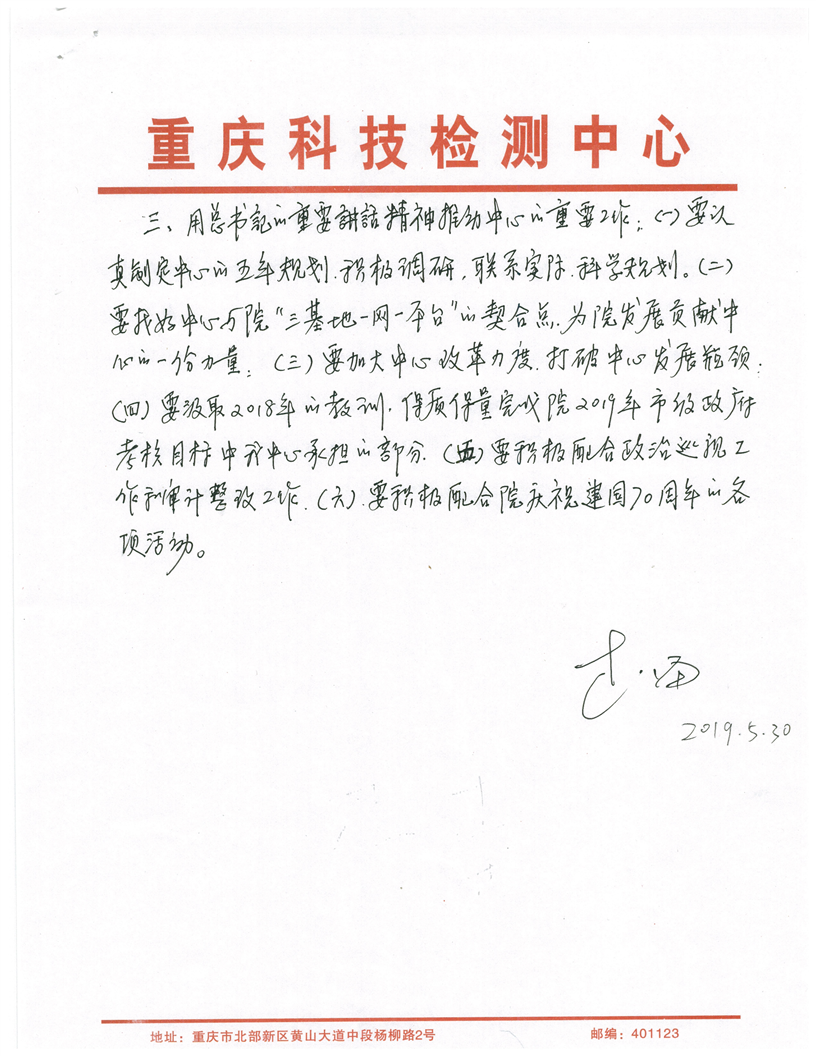 重庆科技检测中心
三、用总书记的重要讲话精神推动中心的重要工作：(一)要认
真制定中心的五年规划.积极调研，联系实际.科学规划。(二)
要找好中心与院“三基地一网一平台”的契合点.为院发展贡献中
心的一份力量；(三)要加大中心改革力度.打破中心发展瓶颈；
(四)要汲取2018年的教训.保质保量完成院2019年市级政府
考核目标中我中心承担的部分.(五)要积极配合政治巡视工
作和审计整改工作.(六).要积极配合院庆祝建国70周年的各
项活动。
2019.5.30
地址：重庆市北部新区黄山大道中段杨柳路2号 邮编：401123